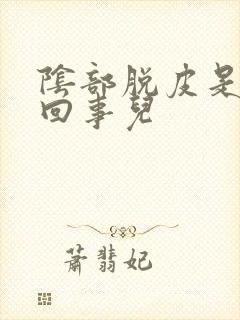 陰部脱皮是
回事兒
蕭翡妃